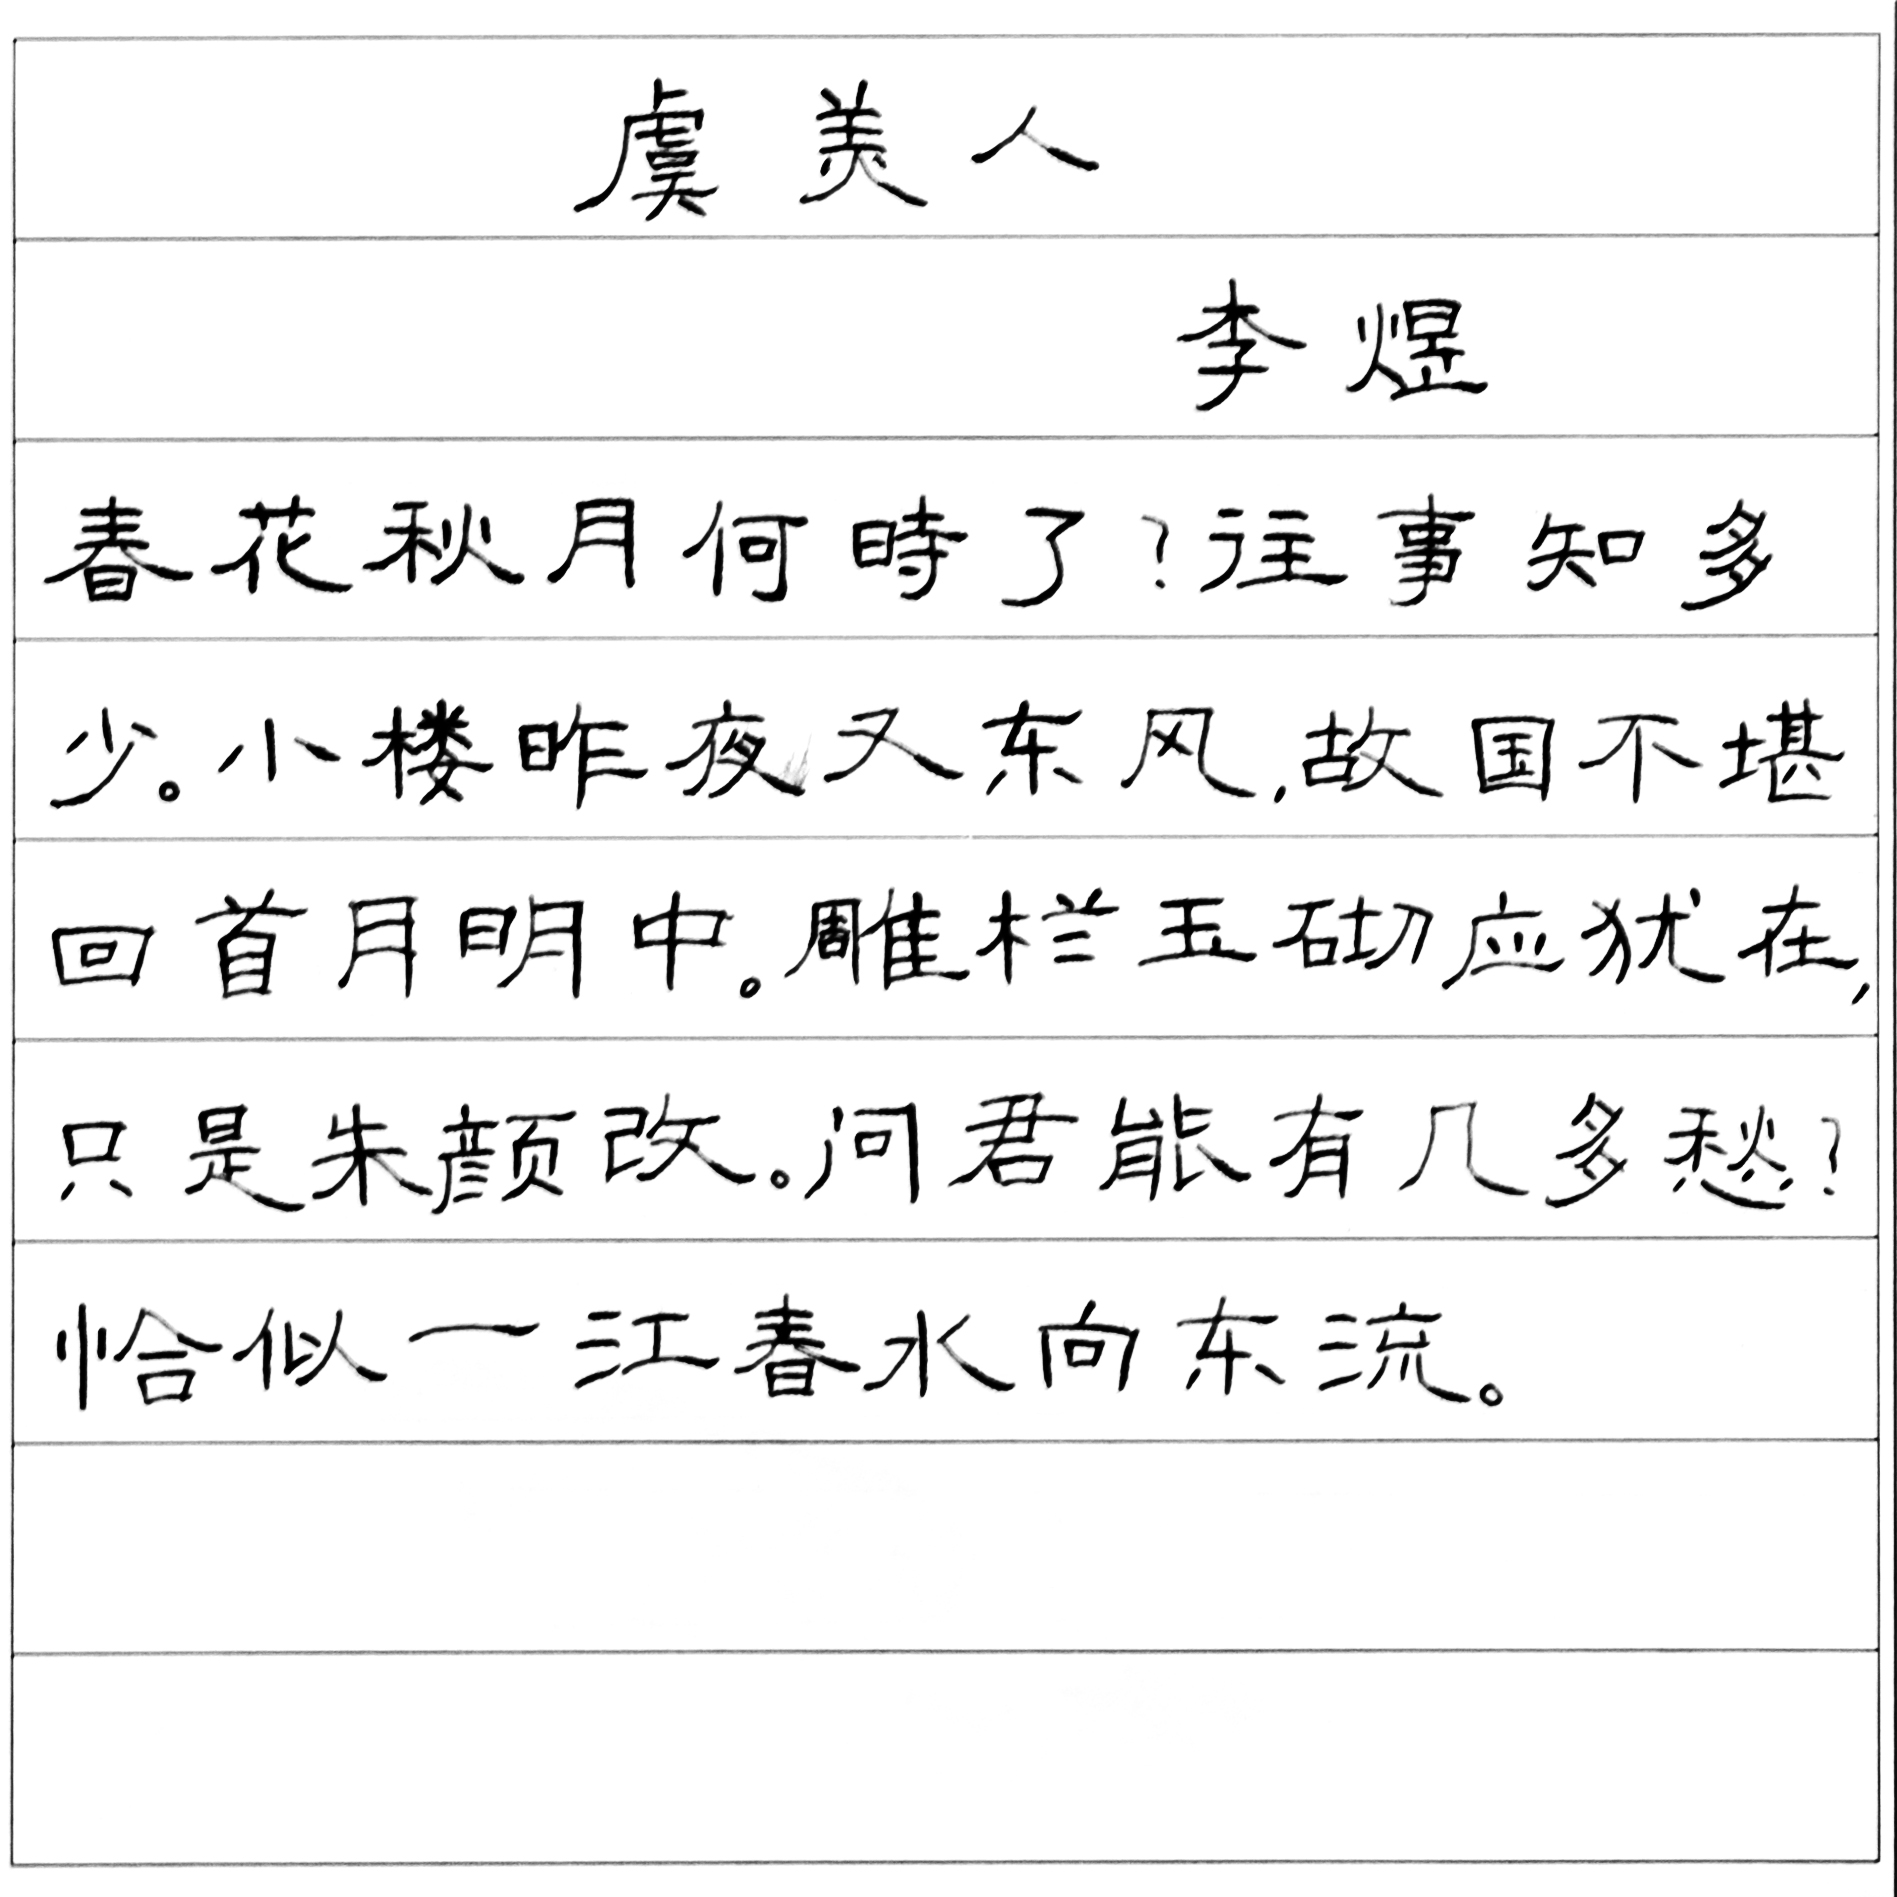 虞美人
李煜
春花秋月何時了？往事知多
少。小楼昨夜又东风，故国不堪
回首月明中。雕栏玉砌应犹在，
只是朱颜改。问君能有几多愁？
恰似一江春水向东流。